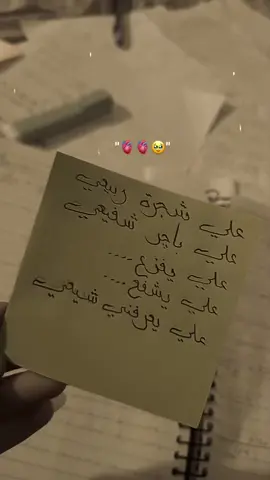 "🫀🫀🥹"
علي شجرة ربيعي
علي باچر شفيعي
علي يفزع ....
علي يشفع ....
علي يعرفني شيعي